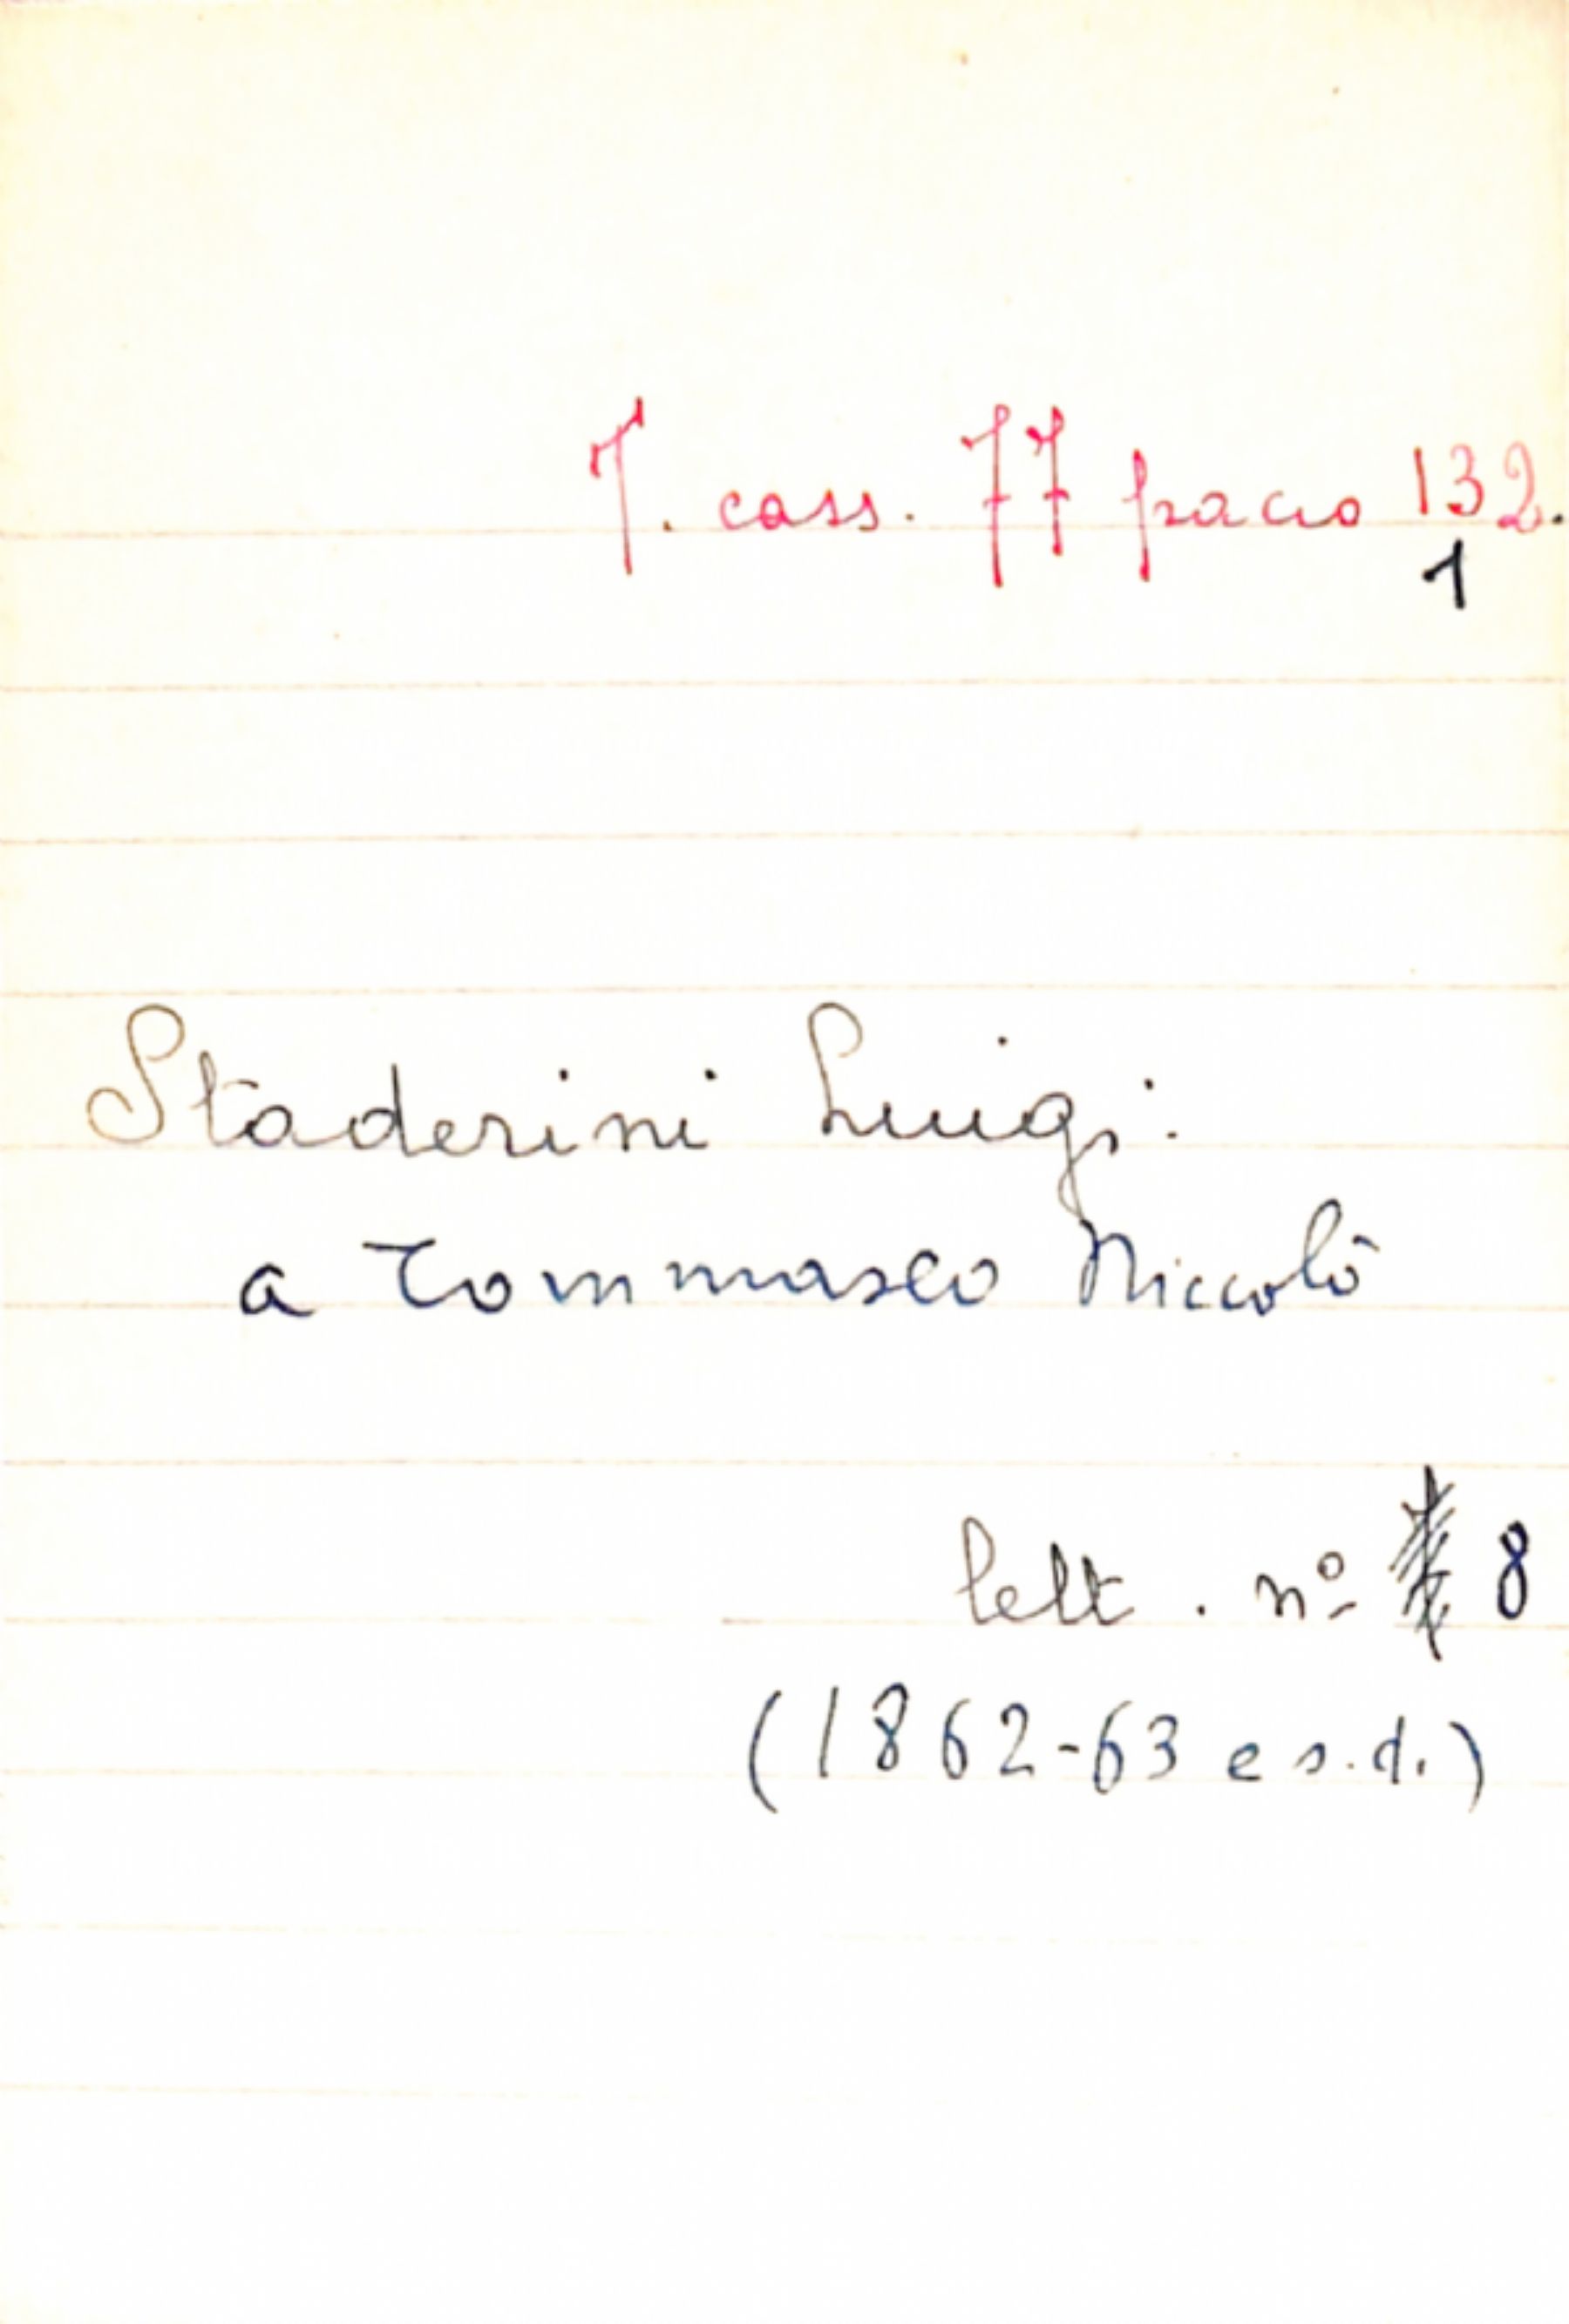 T. cass. 77 pacco 132.
1
Staderini Luigi.
a Tommaseo Niccolò
lett. nº 8
(1862-63 e s.d.)